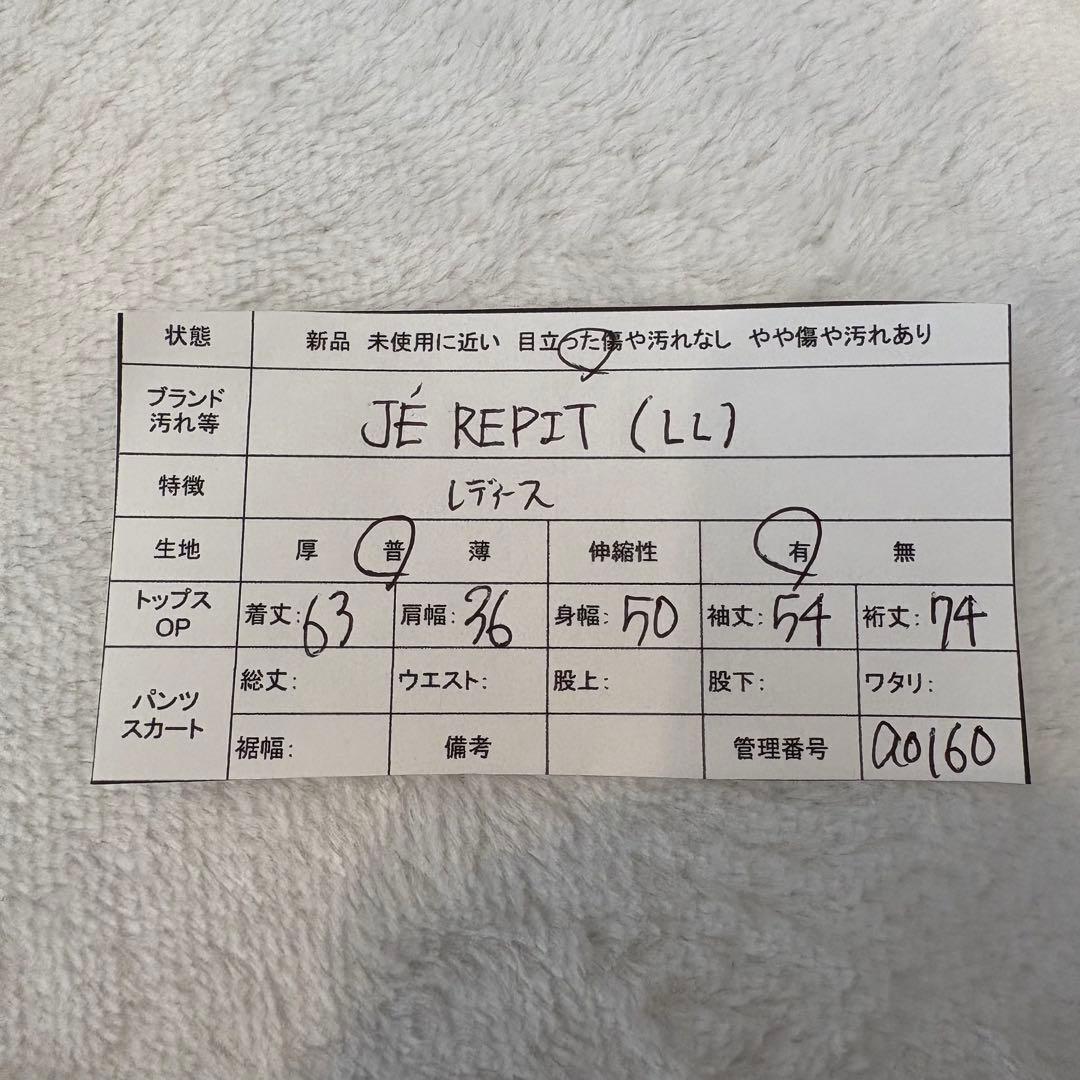 状態 新品 未使用に近い 目立った傷や汚れなし やや傷や汚れあり
ブランド
汚れ等
JÉ REPIT (LL)
特徴 レディース
生地 厚 普 薄 伸縮性 有 無
トップス
OP
着丈:63 肩幅:36 身幅:50 袖丈:54 裄丈:74
パンツ
スカート
総丈: ウエスト: 股上: 股下: ワタリ:
裾幅: 備考 管理番号 a0160